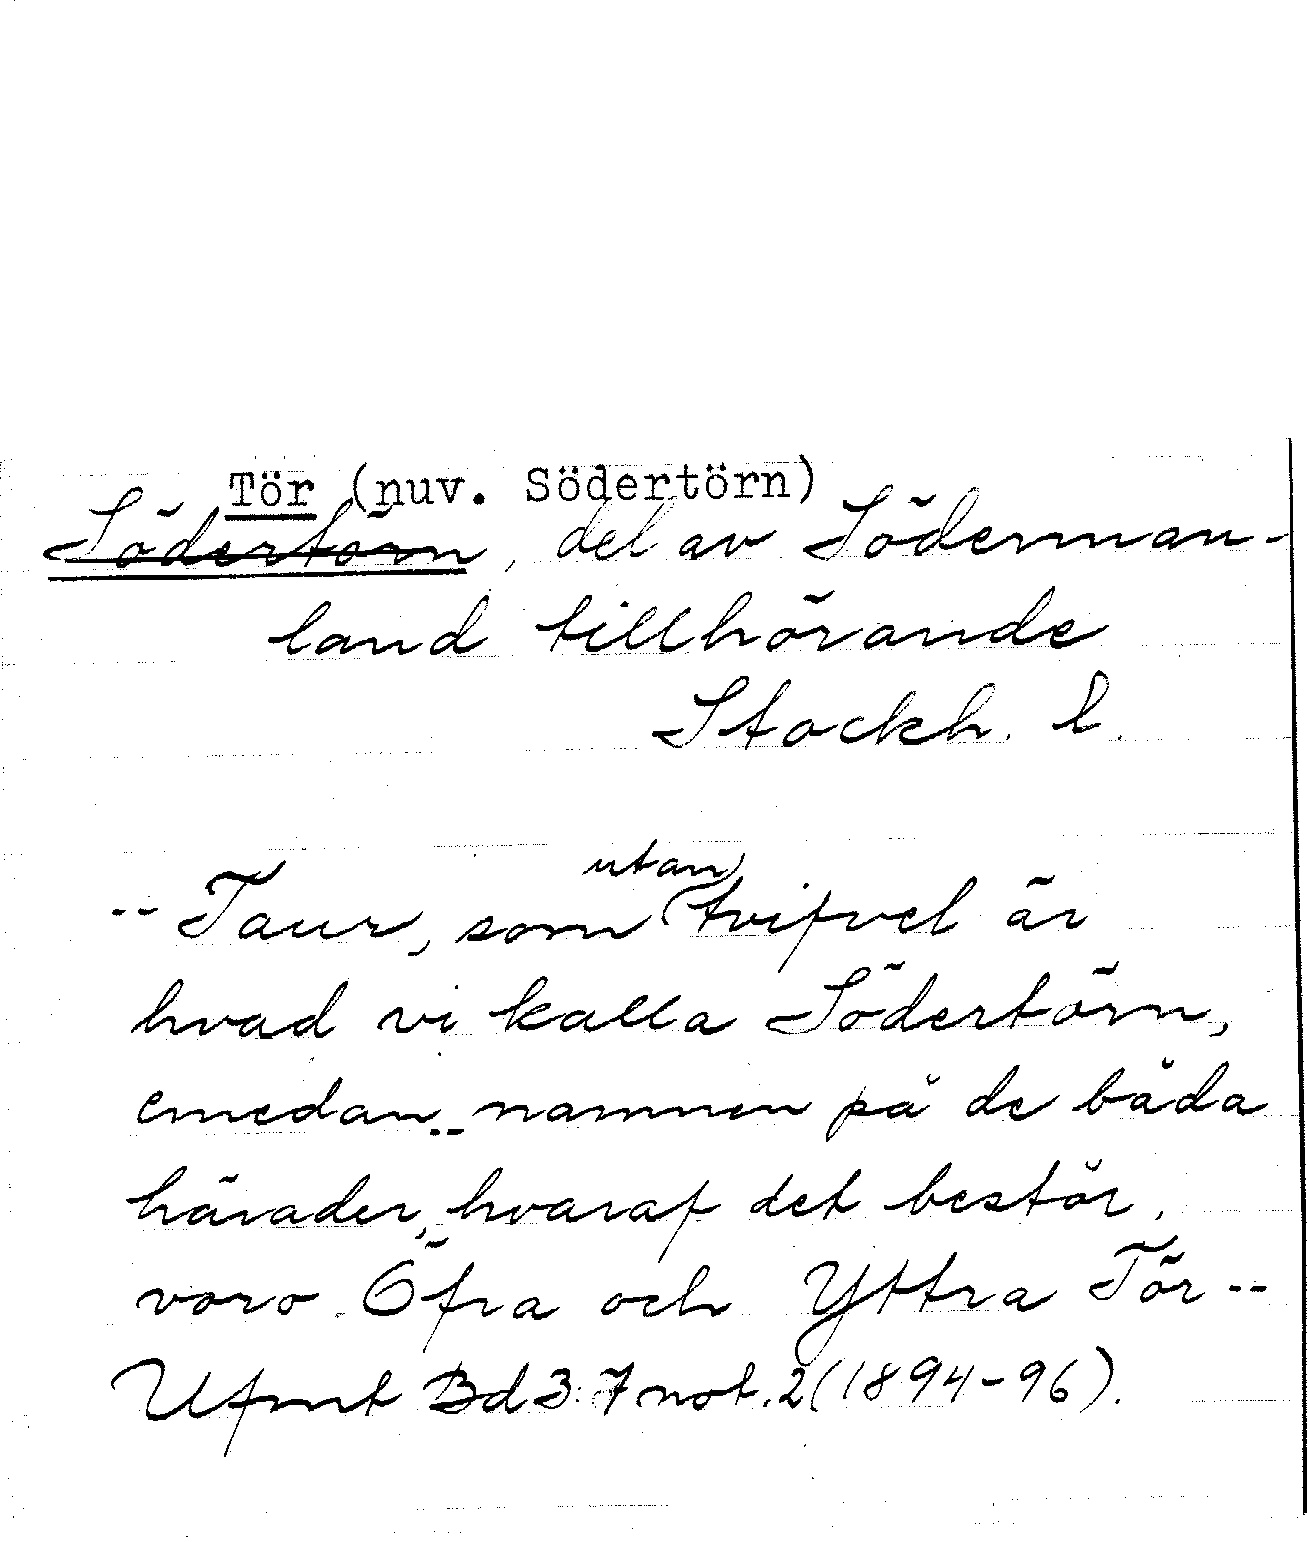 Tör (nuv. Södertörn)
Södertörn, del av Söderman-
land tillhörande
Stockh. l.
-- Taur, som utan tvifvel är
hvad vi kalla Södertörn,
emedan -- namnen på de båda
härader, hvaraf det består,
voro Öfra och Yttra Tör --
Ufmt Bd 3:7 not. 2 (1894-96).